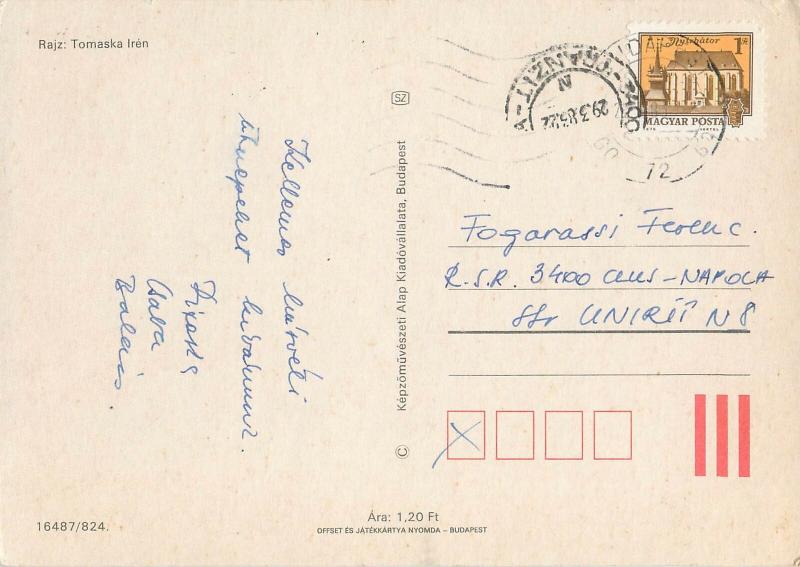 Rajz: Tomaska Irén
Kellemes húsvéti
ünnepeket kívánunk.
Piroska
Csaba
Balázs
SZ
© Képzőművészeti Alap Kiadóvállalata, Budapest
Nyírbátor 1 Ft
MAGYAR POSTA
TRANZIT
3400
N
29.3.85.22
72
Fogarassi Ferenc.
R.S.R. 3400 CLUJ-NAPOCA
Str UNIRII N8
X
16487/824.
Ára: 1,20 Ft
OFFSET ÉS JÁTÉKKÁRTYA NYOMDA – BUDAPEST